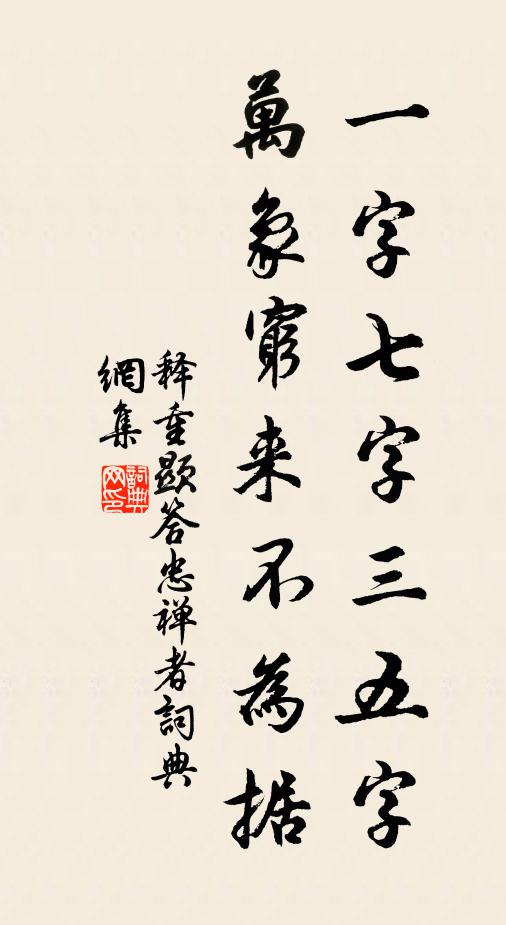 一字七字三五字
萬象窮来不為据
释重顯答忠禅者詞典
網集
詞典网印